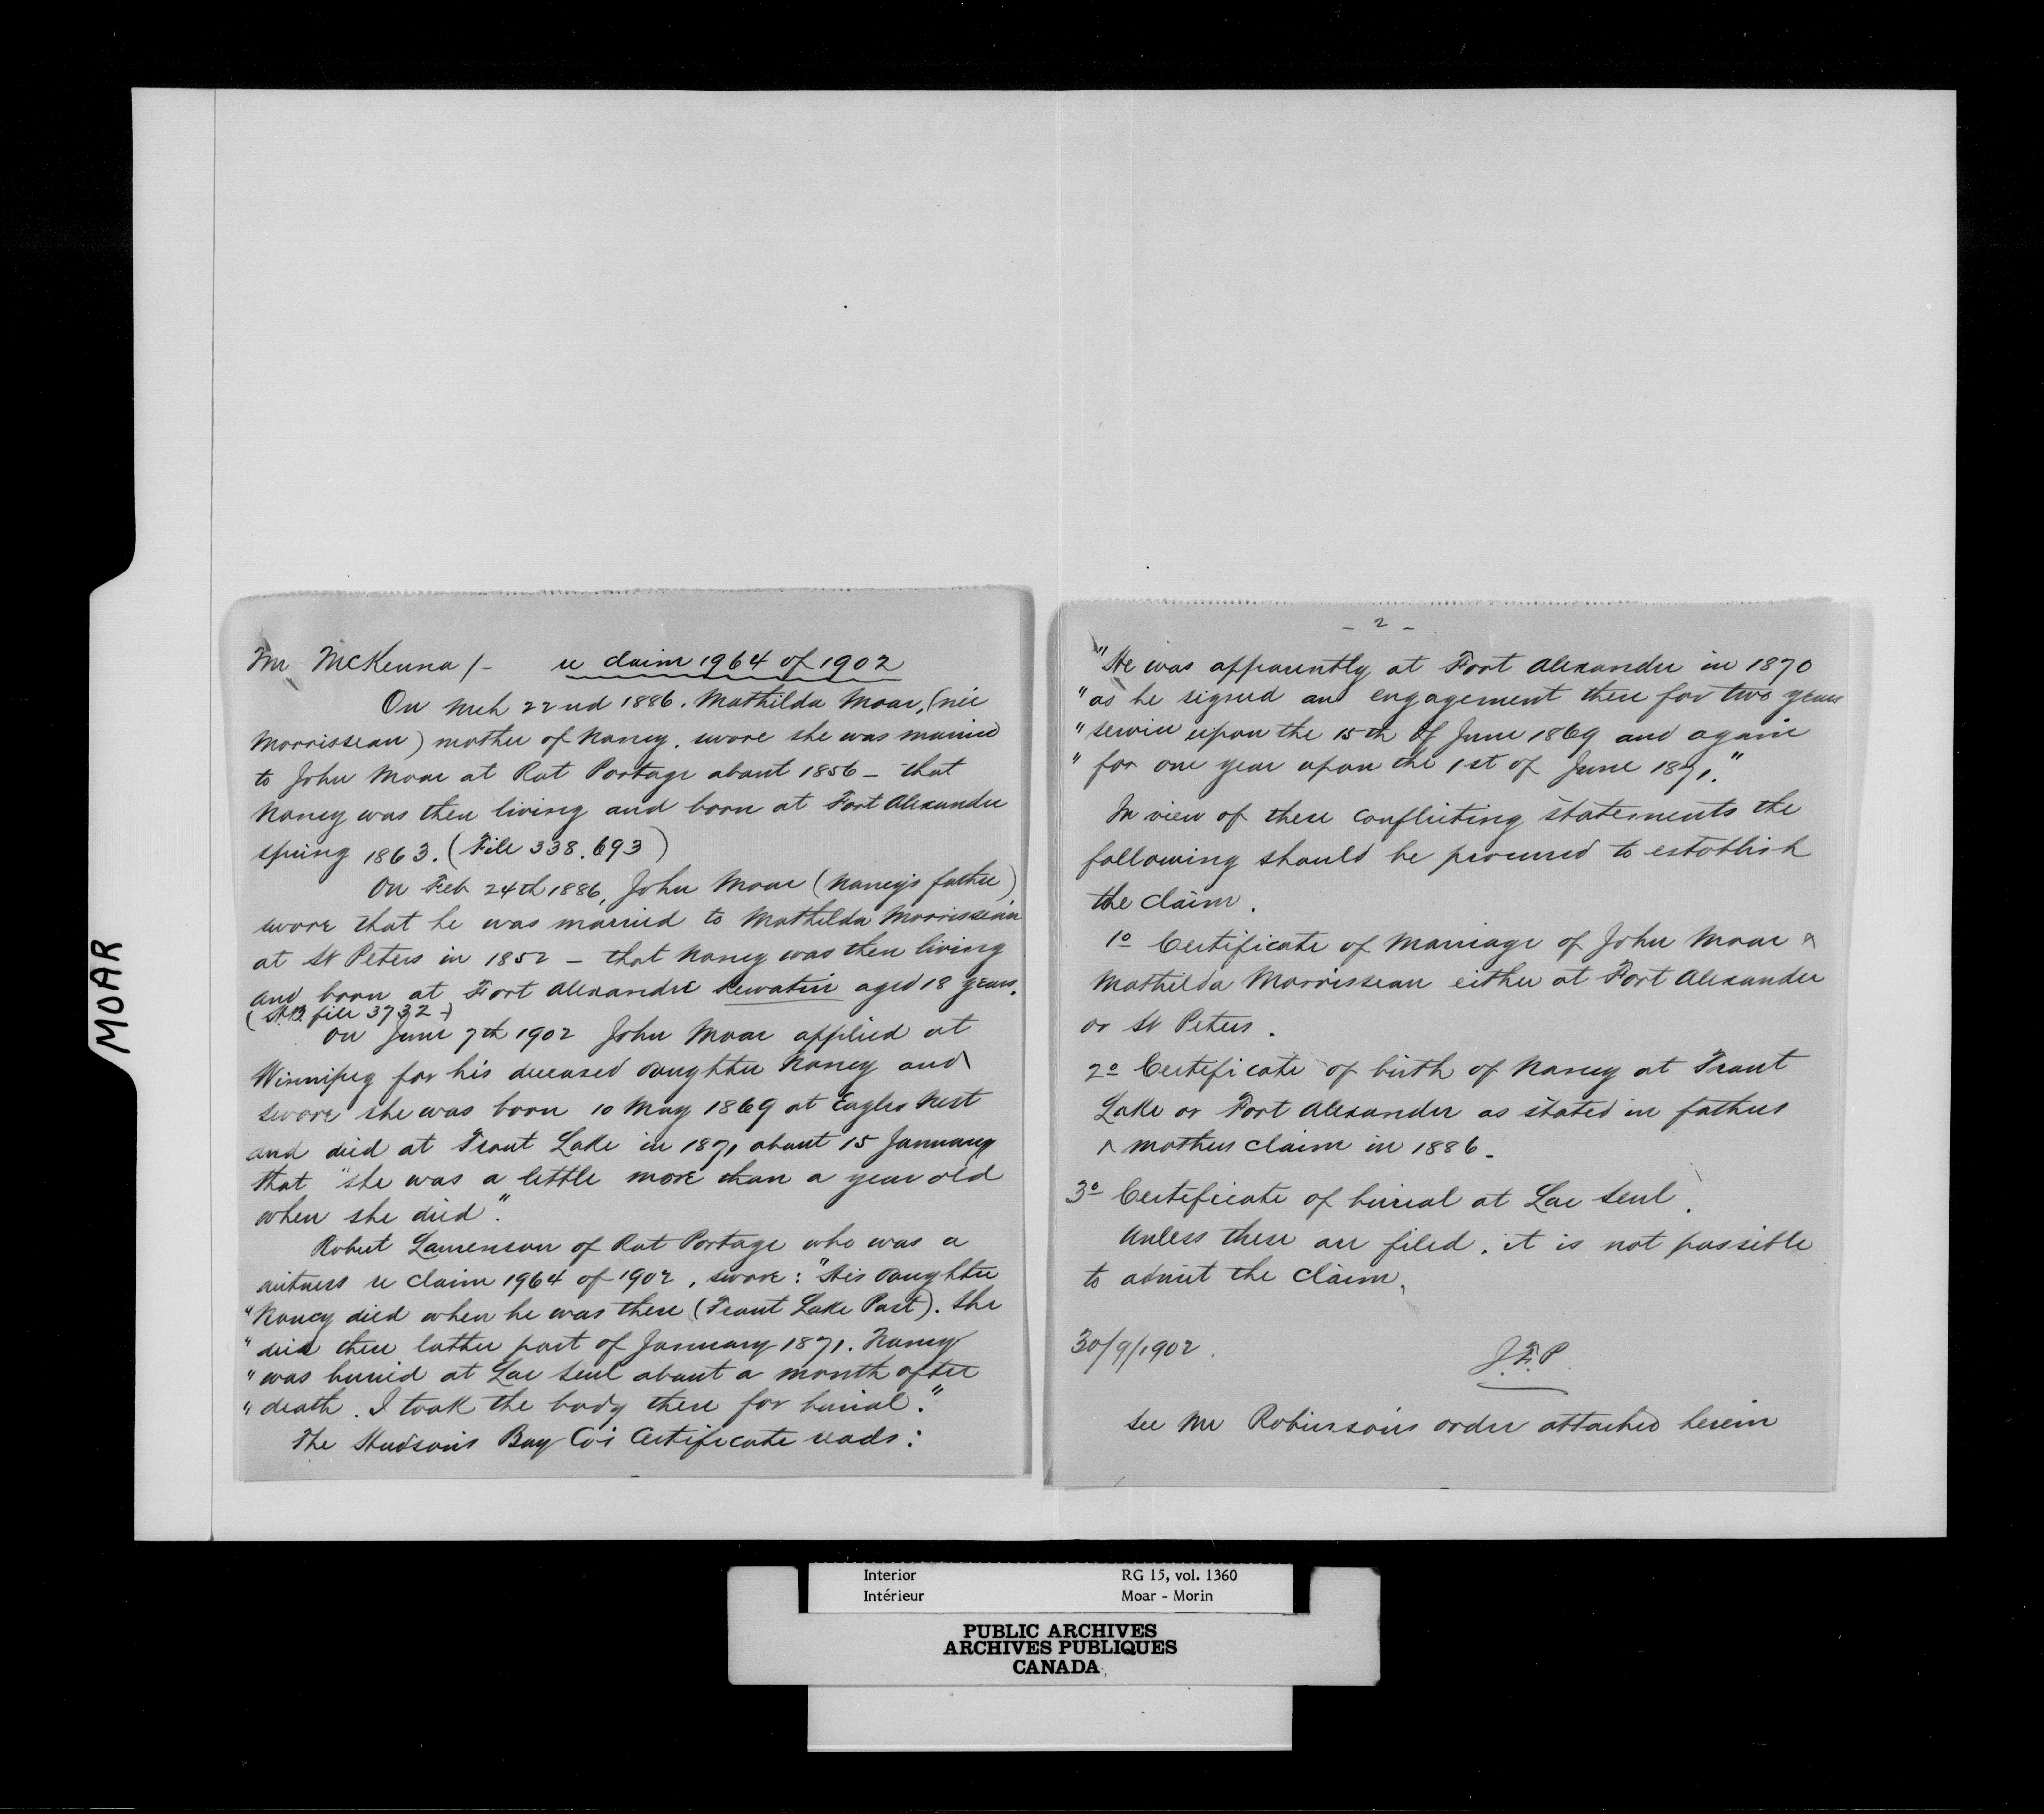 MOAR
Mr McKenna /- re claim 1964 of 1902
On Mch 22nd 1886. Mathilda Moar, (neé
Morrisseau) mother of Nancy, swore she was married
to John Moar at Rat Portage about 1856 - that
Nancy was then living and born at Fort Alexander
spring 1863. (File 338.693)
On Feb 24th 1886, John Moar (Nancy's father)
swore that he was married to Mathilda Morrisseau
at St Peters in 1852 - that Nancy was then living
and born at Fort Alexandre Kewatin aged 18 years.
(H.B. file 3732-)
On June 7th 1902 John Moar applied at
Winnipeg for his deceased daughter Nancy and
swore she was born 10 May 1869 at Eagles Nest
and died at Trout Lake in 1871 about 15 January
that "she was a little more than a year old
when she died".
Robert Laurenson of Rat Portage who was a
witness re claim 1964 of 1902, swore: "His daughter
"Nancy died when he was there (Trout Lake Post). She
" died there latter part of January 1871. Nancy
" was buried at Lac Seul about a month after
" death. I took the body there for burial."
The Hudson's Bay Co's Certificate reads:
- 2 -
"He was apparently at Fort Alexander in 1870
" as he signed an engagement there for two years
" service upon the 15th of June 1869 and again
" for one year upon the 1st of June 1871."
In view of these conflicting statements the
following should be procured to establish
the claim.
1o Certificate of Marriage of John Moar &
Mathilda Morrisseau either at Fort Alexander
or St Peters.
2o Certificate of birth of Nancy at Trout
Lake or Fort Alexander as stated in fathers
& mothers claim in 1886-
3o Certificate of burial at Lac Seul.
Unless these are filed, it is not possible
to admit the claim.
30/9/1902.
J.F.P.
See Mr Robinson's order attached herein
Interior RG 15, vol. 1360
Intérieur Moar - Morin
PUBLIC ARCHIVES
ARCHIVES PUBLIQUES
CANADA